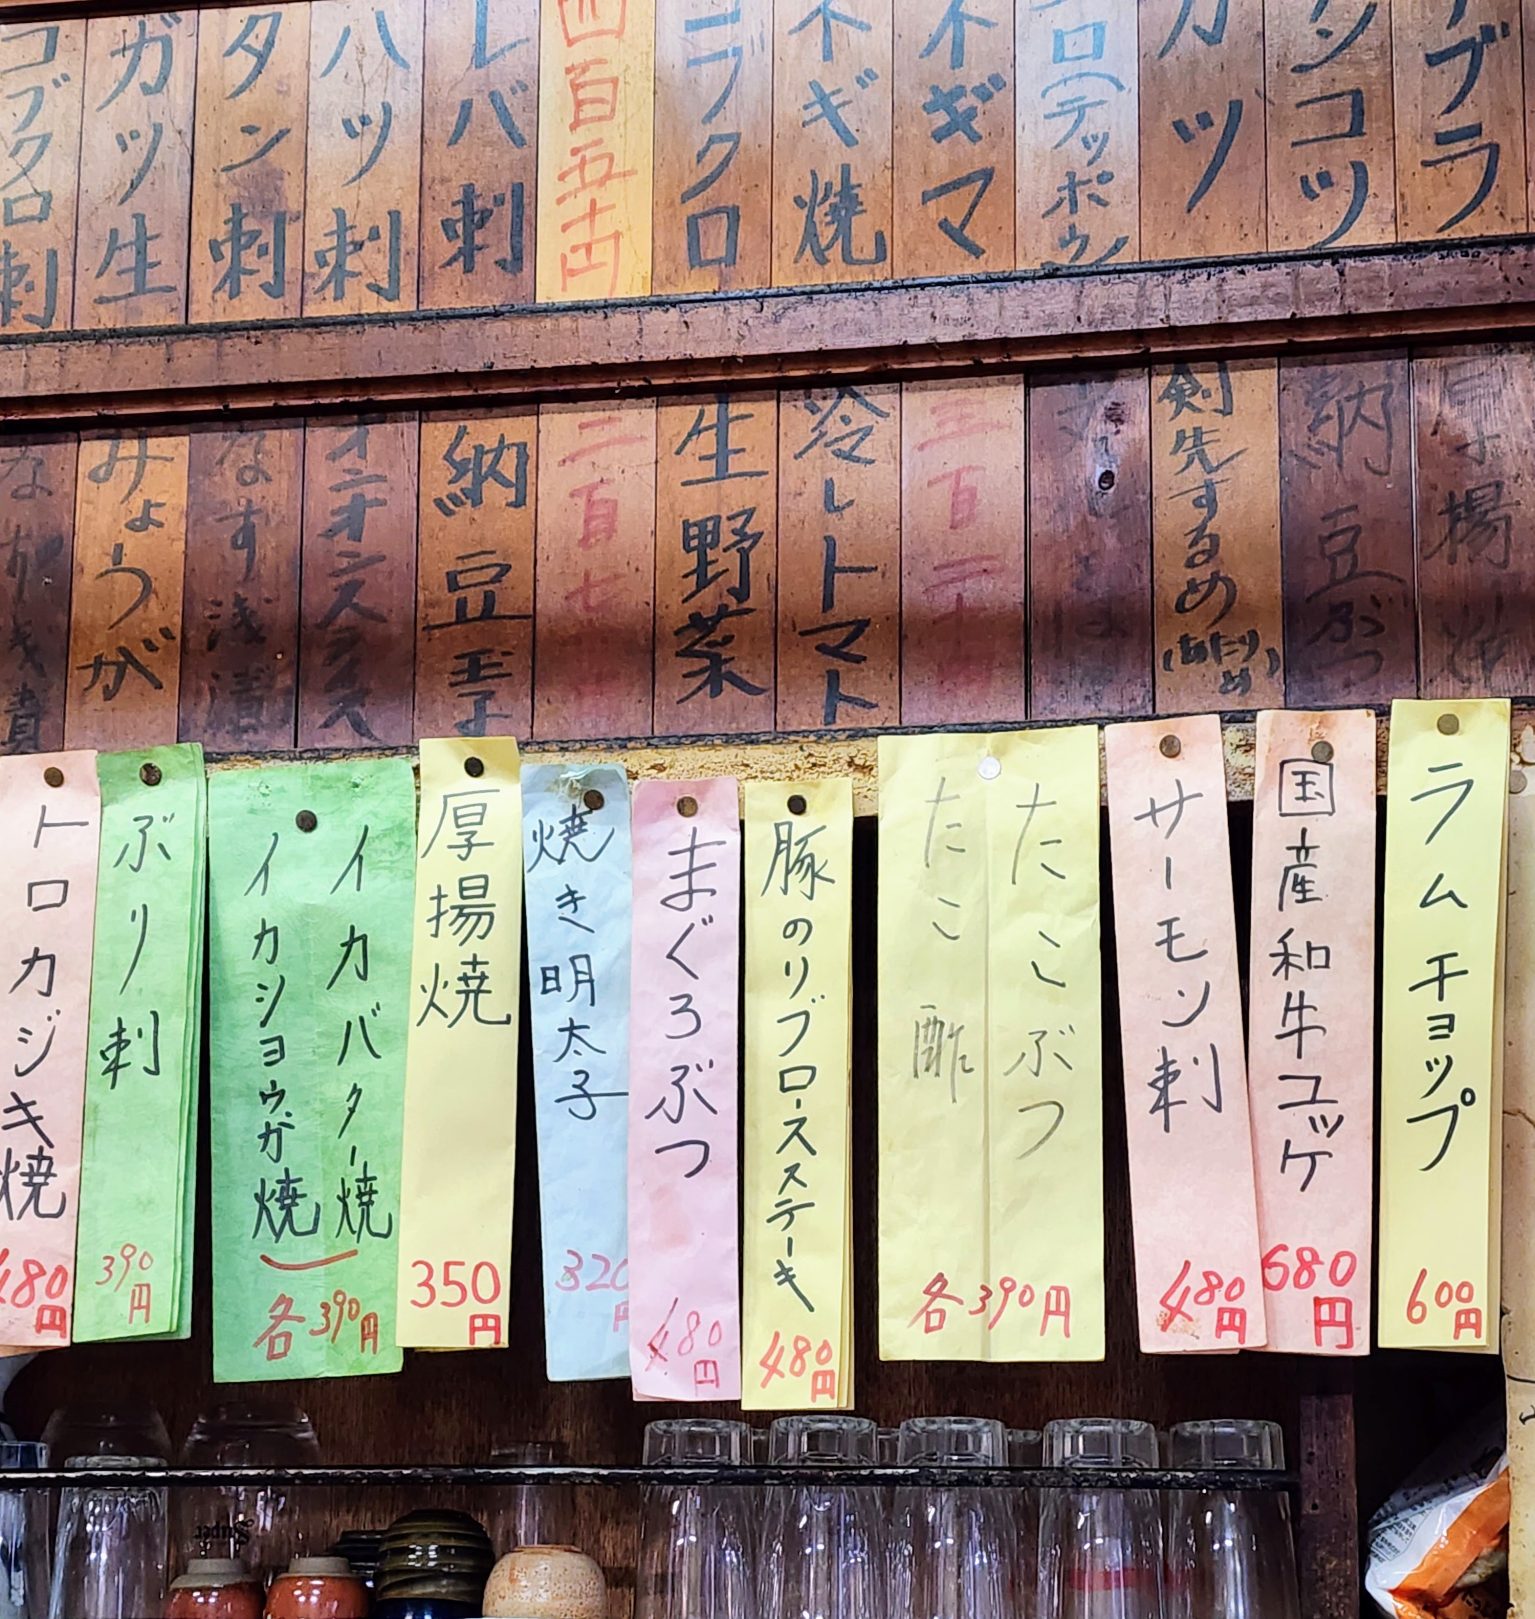 アブラ
ナンコツ
ガツ
シロ(テッポウ)
ネギマ
ネギ焼
コブクロ
四百五十円
レバ刺
ハツ刺
タン刺
ガツ生
コブクロ刺
厚揚
納豆ぶつ
剣先するめ(あたりめ)
三百二十
冷しトマト
生野菜
二百七
納豆玉子
オニオンスライス
なす浅漬
みょうが
ラムチョップ
600円
国産和牛ユッケ
680円
サーモン刺
480円
たこぶつ
たこ酢
各390円
豚のリブロースステーキ
480円
まぐろぶつ
480円
焼き明太子
320円
厚揚焼
350円
イカバター焼
イカショウガ焼
各390円
ぶり刺
390円
トロカジキ焼
480円